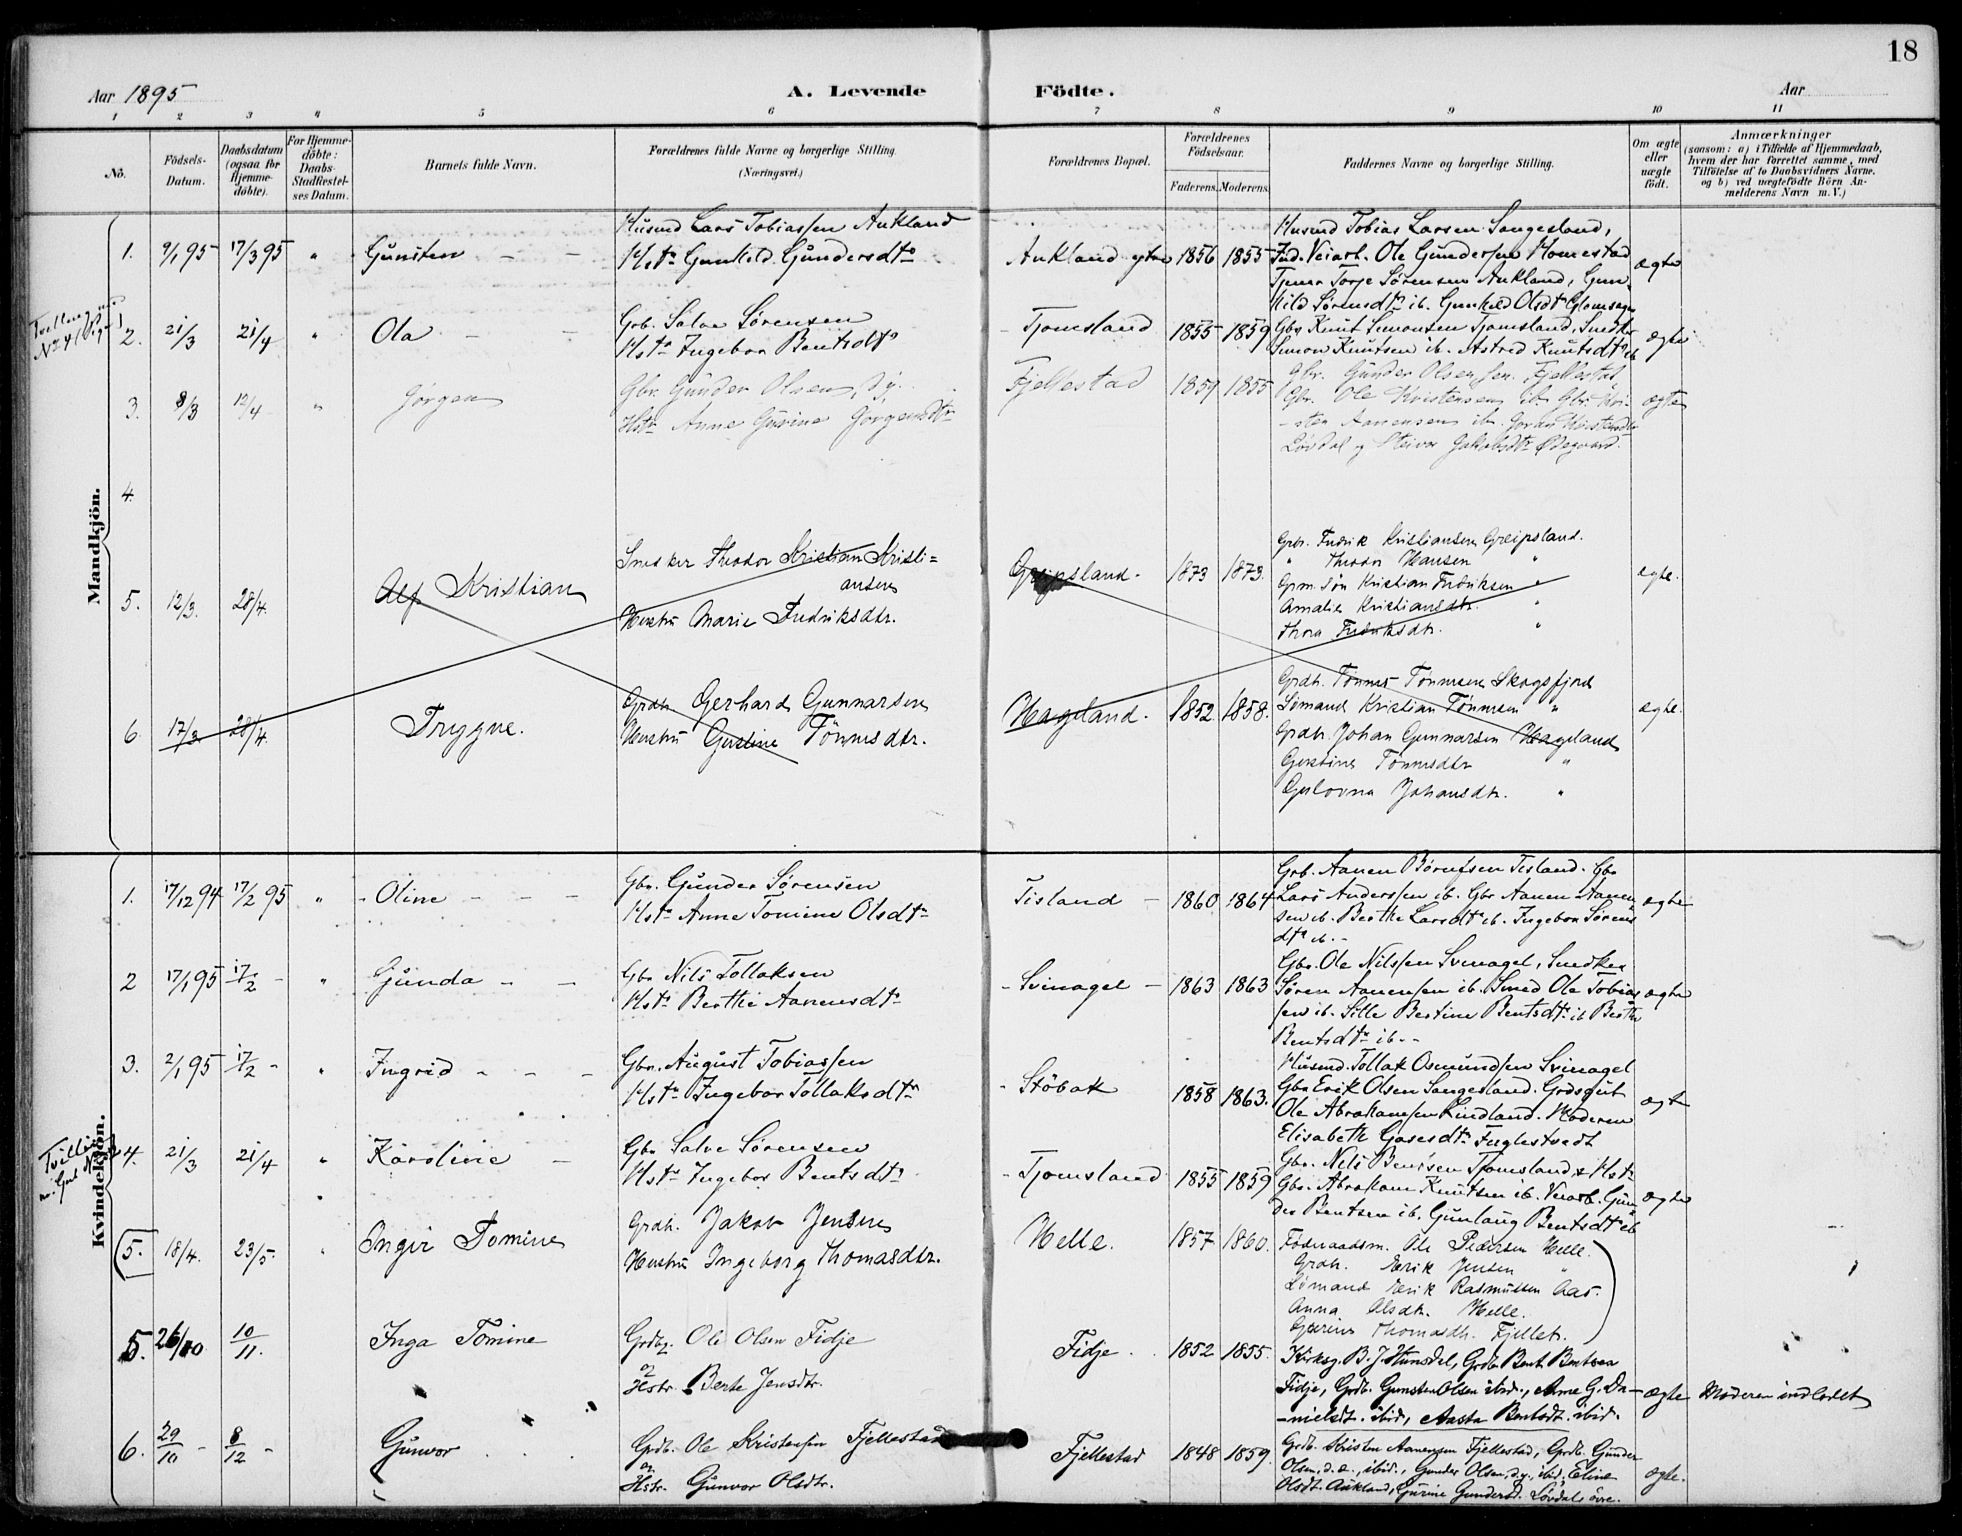 18
Aar 1895
A. Levende
Födte.
Aar
1 2 3 4 5 6 7 8 9 10 11
No.
Födsels-
Datum.
Daabsdatum
(ogsaa for
Hjemme-
döbte).
For Hjemme-
döbte:
Daabs-
Stadfæstel-
ses Datum.
Barnets fulde Navn.
Forældrenes fulde Navne og borgerlige Stilling
(Næringsvei.)
Forældrenes Bopæl.
Forældrenes
Födselsaar.
Faderens. Moderens.
Faddernes Navne og borgerlige Stilling.
Om ægte
eller
uægte
födt.
Anmærkninger
(saasom: a) i Tilfælde af Hjemmedaab,
hvem der har forrettet samme, med
Tilföielse af to Daabsvidners Navne.
og b) ved uægtefödte Börn An-
melderens Navn m. V.)
Mandkjön.
1. 9/1 95 17/3 95 " Gunsten - -
Husmd Lars Tobiassen Aukland
Hstr Gunhild Gundersdtr
Aukland ytre 1856 1855
Husmd Tobias Larsen Sangesland,
Ind. Veiarb. Ole Gundersen Homestad
Tjener Torje Sørensen Aukland, Gun-
hild Sørensdtr ib. Gunhild Olsdtr
ægte
2. 21/3 21/4 " Ola - -
Gbr. Salve Sørensen
Hstr Ingebor Bentsdtr
- Tjomsland 1855 1859
Gbr Knut Simonsen Tjomsland, Smedker
Simon Knutsen ib. Astred Knutsdtr ib
ægte
3. 8/3 12/4 " Jørgen
Gbr. Gunder Olsen, d.y.
Hstr Anne Gurine Jørgensdtr
Fjellestad 1859 1855
Gbr. Gunder Olsen sen. Fjellestad,
Gbr. Ole Kristensen ib. Gbr. Kri-
-sten Aanensen ib.
Løvdal og Jakobsdtr Ødegaard.
ægte
4.
5. 12/3. 28/4. Alf Kristian
Snedker Theodor Kristian Kristi=
ansen
Hustru Marie Fredriksdtr.
Greipsland. 1873 1873.
Gbr. Fredrik Kristiansen Greipsland.
" Theodor Hansen "
Grm. søn Kristian Fredriksen "
Amalie Kristiansdtr. "
Thora Fredriksdtr. "
ægte.
6. 17/3. 28/4. Trygve.
Grdbr. Gerhard Gunnarsen
Hustru Gustine Tønnesdtr.
Hageland. 1852 1858.
Grdbr. Tønnes Tønnesen Skogsfjord
Sømand Kristian Tønnesen "
Grdbr. Johan Gunnarsen Hageland
Tønnesdtr "
Gulovna Johansdtr. "
ægte.
Kvindekjön.
1. 17/12 94 17/2 95 " - Oline - - -
Gbr. Gunder Sørensen
Hstr Anne Tomine Olsdtr
Tisland - 1860 1864
Grb. Aanen Tisland. Gbr
Lars Anderssen ib. Gbr Aanen Aanen
sen ib. Berthe Larsdtr ib. Ingebor Sørens
dtr ib. -
ægte
2 17/1 95 17/2 - " Gunda - -
Gbr Nils Tollaksen
Hstr Berthe Aanensdtr
- Svinagel - 1863 1863
Gbr. Ole Nilssen Svinagel, Snedker
Søren Aanensen ib. Smed Ole Tobias
sen ib. Sille Bertine Bentsdtr ib Berthe
Bentsdtr ib. -
ægte
3. 2/1 95 17/2 - " Ingrid - - -
Gbr. August Tobiassen
Hstr Ingebor Tollaksdtr
- Stöbak 1858 1863.
Husmd. Tollak Osmundsen Svinagel
Gbr Erik Olsen Sangesland. Grdsgut
Ole Abrahamsen Lindland. Moderen
Elisabeth Fuglestvedt
ægte
4. 21/3 21/4 " Karoline -
Gbr Salve Sørensen
Hstr Ingebor Bentsdtr
- Tjomsland 1855 1859
Gbr. Nils Bentsen Tjomsland & Hstr
Gbr. Abraham Knutsen ib. Veiarb. Gun
der Bentsen ib. Gunlaug Bentsdtr ib
ægte
5. 18/4. 23/5. " Inger Tomine
Grdbr. Jakob Jensen
Hustru Ingeborg Thomasdtr.
Helle. 1857 1860.
Føderaadsm. Ole Pedersen Helle.
Grdbr. Erik Jensen "
Sømand Erik Rasmussen Aas.
Anna Olsdtr. Helle.
Thomasdtr. Fjellet.
5. 26/10 10/11. Inga Tomine
Grdbr. Ole Olsen Fidje
og
Hstr. Berte Jensdtr.
Fidje. 1852 1855.
Kirksg. B. J. Hunsdal, Grdb. Bent Bentsen
Fidje, Grdb. Gunsten Olsen ibid., Anne G. Da-
-nielsdt. ibid, Aasta Bentsdt. ibid.
ægte Moderen indledet
6. 29/10 - 8/12 - Gunvor
Grdb. Ole Kristensen Fjellestad
og
Hstr. Gunvor Olsdtr.
Fjellestad 1848 1859.
Grdb. Kristen Aanensen Fjellestad, Grdb. Gunder
Olsen, d. e., ibid., Gunder Olsen, d.y., ibid., Eline
Olsdt. Aukland, Gurine Gundersd. Løvdal, övre.
ægte.